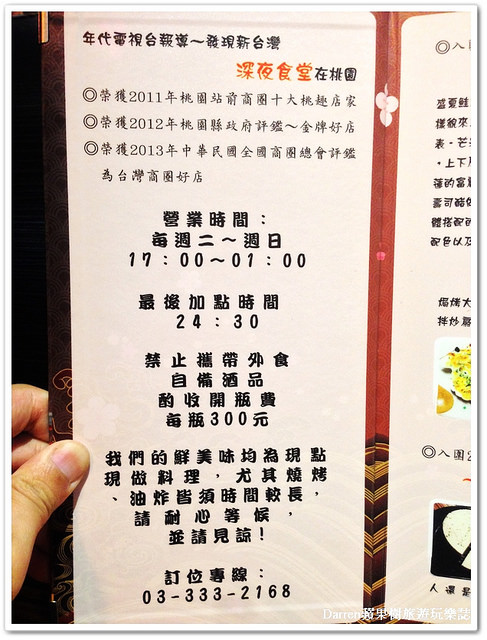 年代電視台報導～發現新台灣
深夜食堂在桃園
◎榮獲2011年桃園站前商圈十大桃趣店家
◎榮獲2012年桃園縣政府評鑑～金牌好店
◎榮獲2013年中華民國全國商圈總會評鑑
為台灣商圈好店
營業時間：
每週二～週日
17：00～01：00
最後加點時間
24：30
禁止攜帶外食
自備酒品
酌收開瓶費
每瓶300元
我們的鮮美味均為現點
現做料理，尤其燒烤
、油炸皆須時間較長，
請耐心等候，
並請見諒！
訂位專線：
03-333-2168
◎入
盛夏鮭
樣貌來
表。芒
，上下
蓮的富
壽司醋
體搭配
配色以
焗烤大
拌炒
◎入圍2
人還是
Darren蘋果樹旅遊玩樂誌